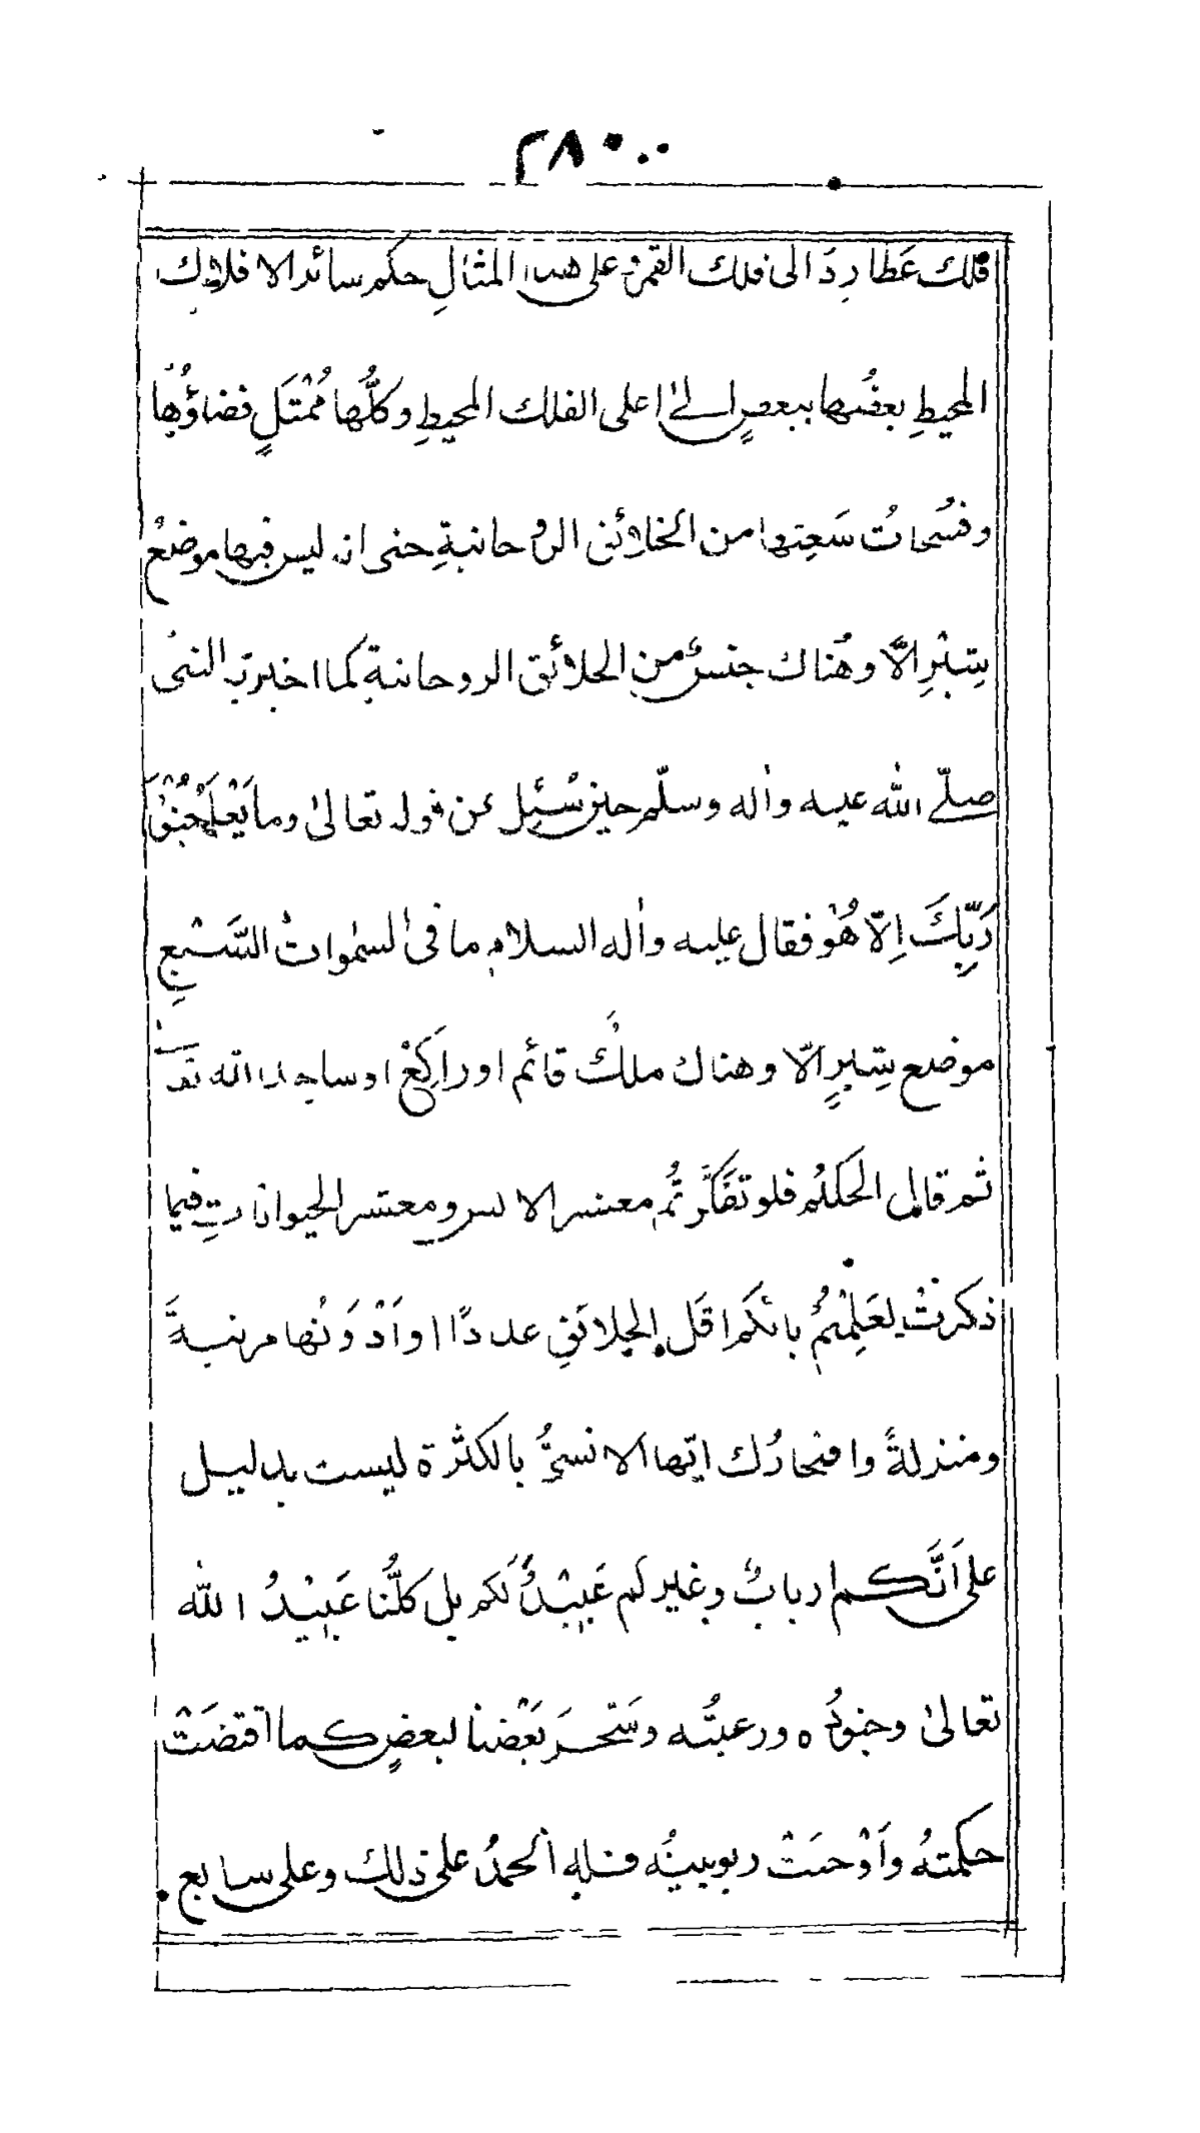 ٢٨٠
فلك عَطاردَ الى فلك القمر وعلى هذا المثالِ حكم سائر الافلاك
المحيطِ بعضُها ببعضٍ الىٰ اعلى الفلك المحيطِ وكلُّها مُمْتَلٍ فضاؤُها
وفسُحاتُ سَعِتها من الخلائق الروحانيةِ حتى انه ليس فيها موضعُ
شِبْرٍ الّا وهُناك جنسٌ من الخلائق الروحانية كما اخبر به النبىُ
صلّى الله عليه واٰله وسلّم حين سُئِل عن قوله تعالىٰ وما يَعْلَمُ جُنُوْدَ
رَبِّكَ اِلّا هُوَ فقال عليه واٰله السلام ما فى السمٰوات السَّبْعِ
موضع شِبرٍ الّا وهناك ملكٌ قائم او راكِعْ او ساجد لله تعـٰ
ثم قال الحَكيم فلو تفَكَّرتُم معشر الانس ومعشر الحيواناتِ فيما
ذكرتْ لعَلِمْتُمْ بانكم اقَل الخلائقِ عددًا او اَدْوَنُها مرتبةً
ومنزلةً وافتخارُك ايّها الانسىُّ بالكثْرة ليست بدليل
على اَنَّكم اربابٌ وغيركم عَبِيْدٌ لكم بل كلُّنا عَبِيْدُ الله
تعالىٰ وجنودُه ورعيتُّه وسَخّرَ بَعْضنا لبعضٍ كما اقتضَتْ
حكمتهُ واَوْجبَتْ ربوبيتُه فلله الحمدُ على ذلك وعلى سابع